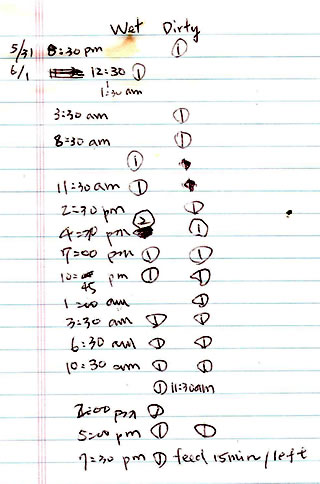 Wet Dirty
5/31 8:30 pm ①
6/1 12:30 ①
1:30 am
3:30 am ①
8:30 am ①
①
11:30 am ①
2:30 pm ①
4:30 pm ② ①
7:00 pm ① ①
10:45 pm ① ①
1:00 am ①
3:30 am ① ①
6:30 am ① ①
10:30 am ① ①
① 11:30am
2:00 pm ①
5:00 pm ① ①
7:30 pm ① feed 15min/left